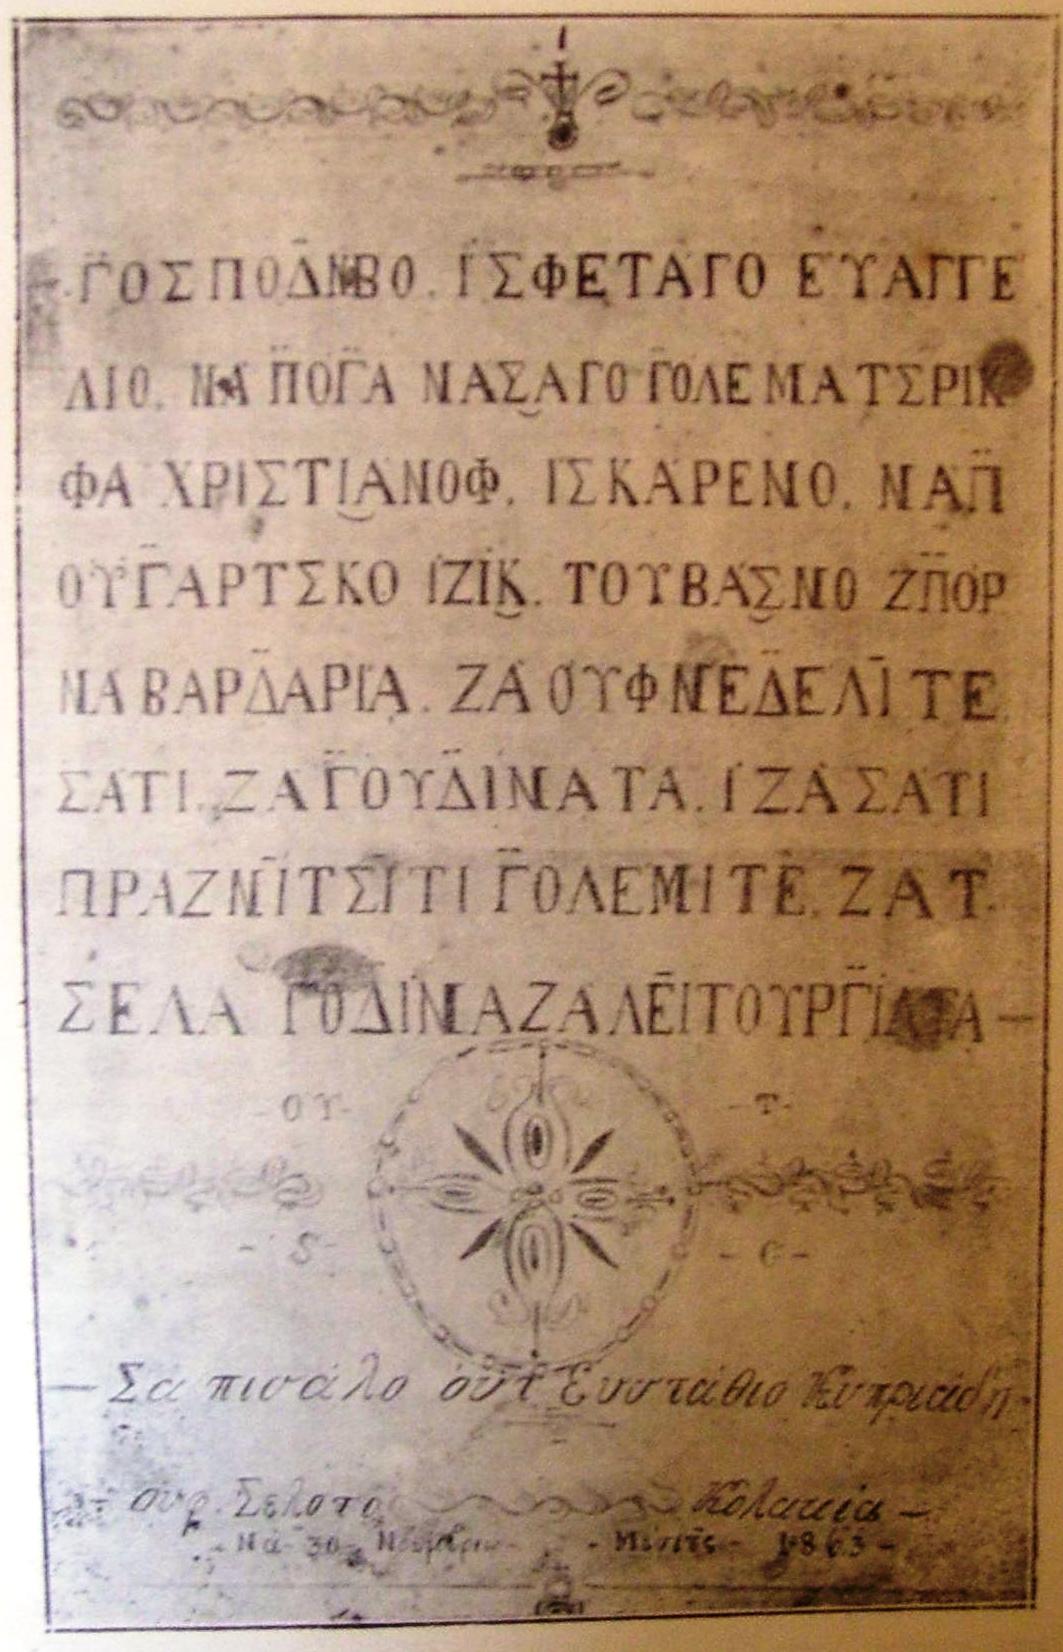 Γ̈ΟΣΠΟΔΝΒΟ. Ι ΣΦΕΤΑΓΟ ΕΥΑΓΓΕ
ΛΙΟ. ΝΑ Π̈ΟΓ̈Α ΝΑΣΑΓΟ Γ̈ΟΛΕΜΑ ΤΣΡΙΚ
ΦΑ ΧΡΙΣΤΙΑΝΟΦ. ΙΣΚΑΡΕΝΟ. ΝΑ Π̈
ΟΥΓ̈ΑΡΤΣΚΟ ΙΖΙΚ. ΤΟΥΒΑΣΝΟ ΖΠ̈ΟΡ
ΝΑ ΒΑΡΔ̈ΑΡΙΑ. ΖΑ ΟΥΦ ΝΕΔ̈ΕΛΙ ΤΕ
ΣΑΤΙ. ΖΑ Γ̈ΟΥΔ̈ΙΝΑΤΑ. Ι ΖΑ ΣΑΤΙ
ΠΡΑΖΝΙΤΣΙΤΙ Γ̈ΟΛΕΜΙΤΕ. ΖΑ Τ
ΣΕΛΑ ΓΟΔΙΝΑ ΖΑ ΛΕΙΤΟΥΡΓ̈ΙΑΤΑ—
-ΟΥ- -Τ-
-S- -C-
—Σα πισάλο ούτ Ευστάθιο Κυπριάδη-
ουφ Σελοτο Κολακία —
-Να 30 - Μέσετς - 1863-